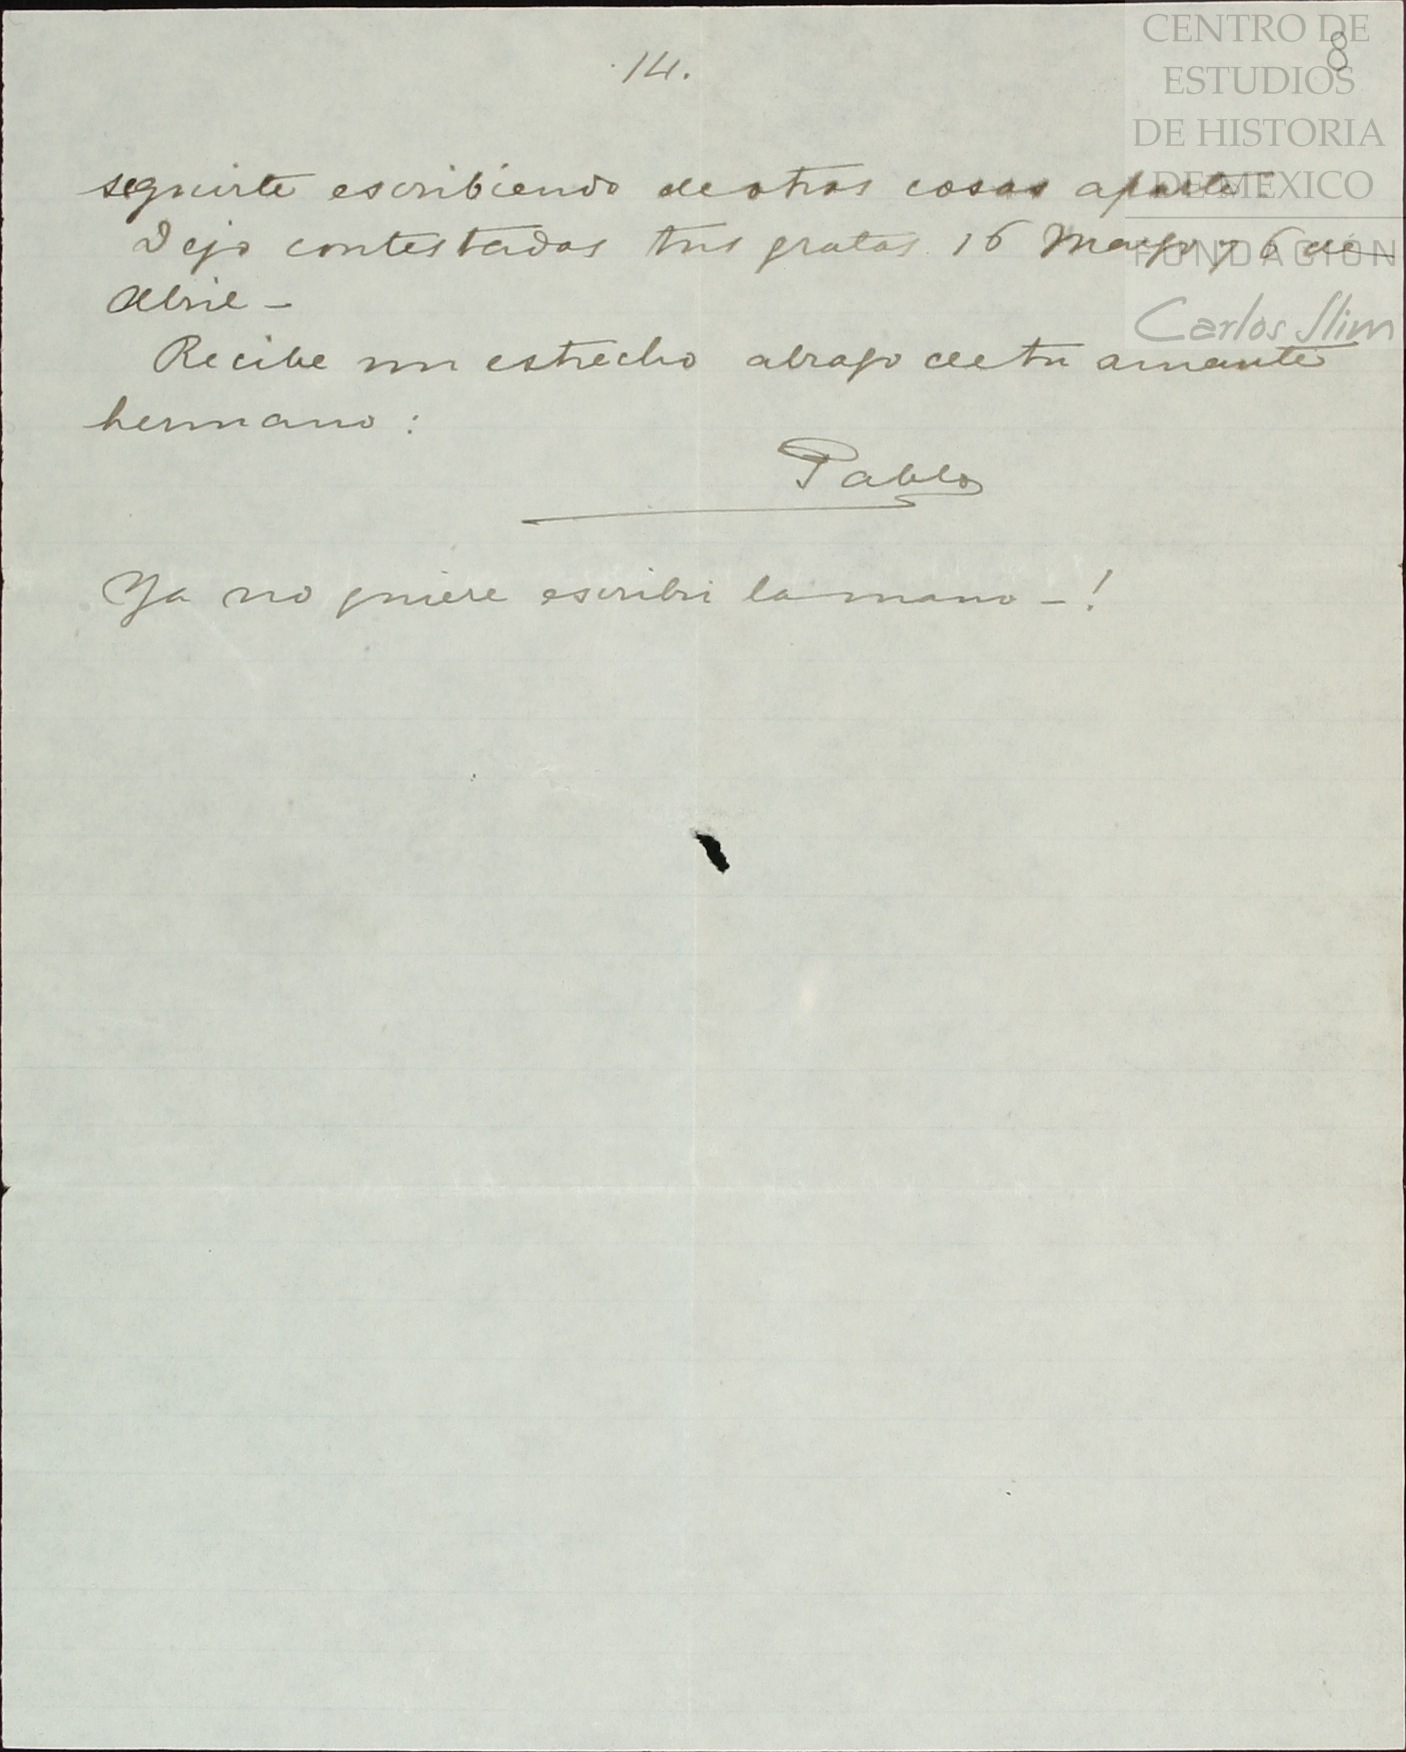 14.
8
CENTRO DE
ESTUDIOS
DE HISTORIA
DE MEXICO
FUNDACIÓN
Carlos Slim
seguirte escribiendo de otras cosas aparte.
Dejo contestadas tus gratas 16 Marzo y 6 de
Abril -
Recibe un estrecho abrazo de tu amante
hermano:
Pablo
Ya no quiere escribir la mano - !